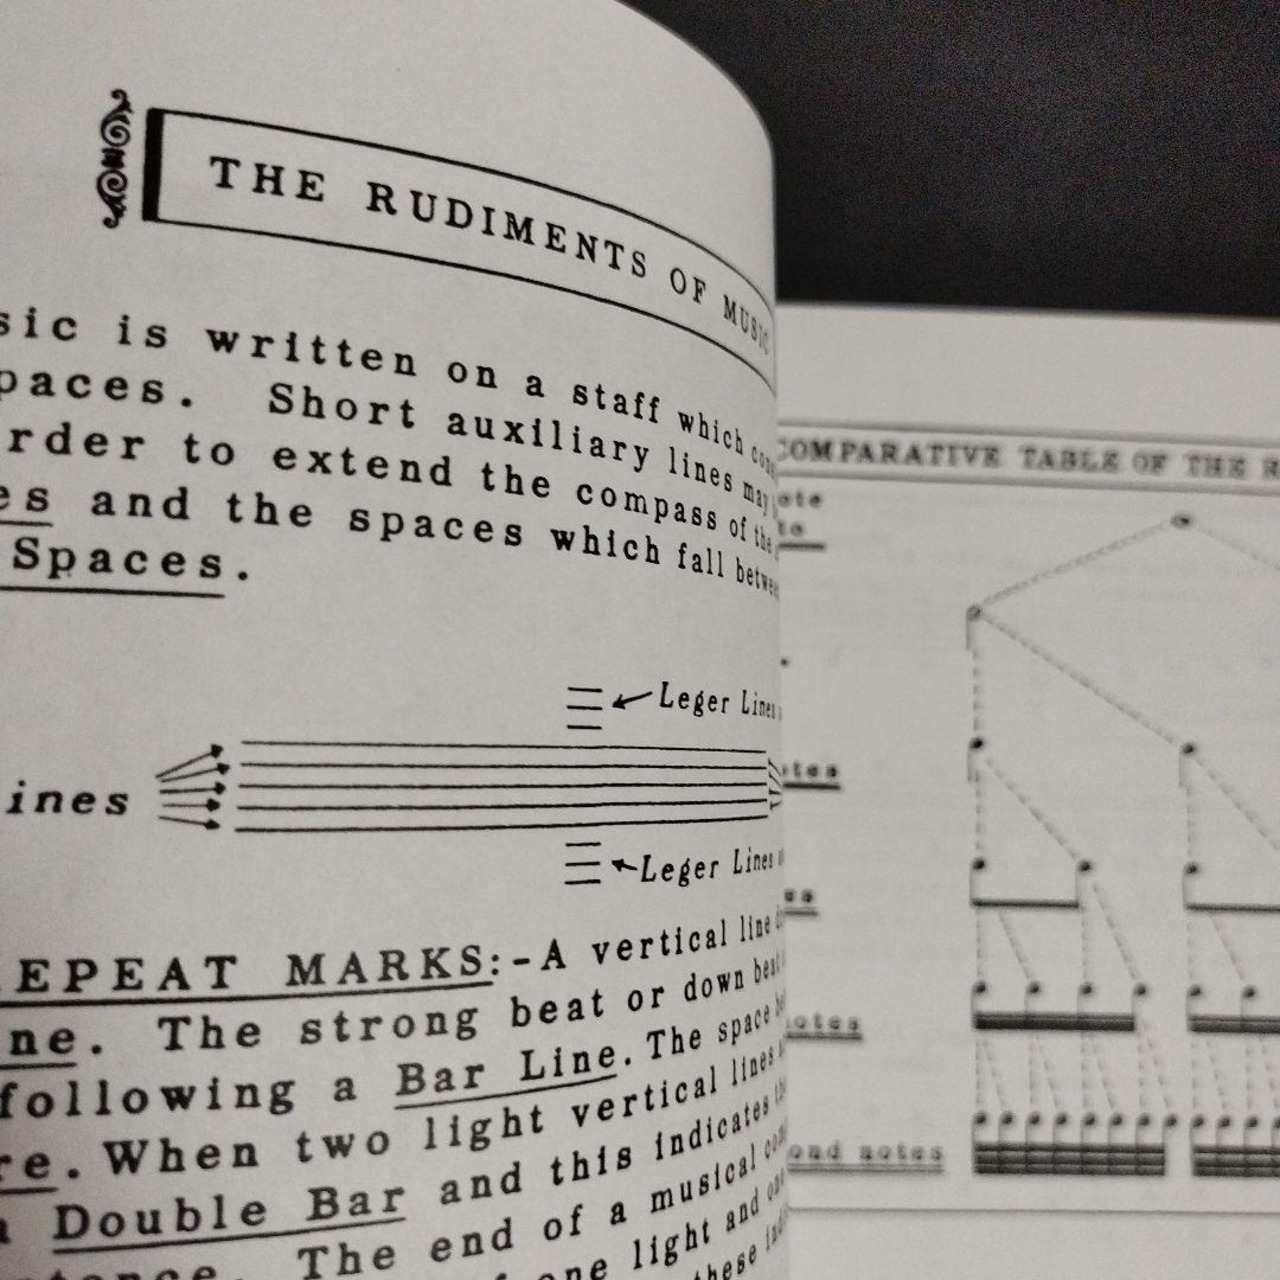 THE RUDIMENTS OF MUSIC
sic is written on a staff which
paces. Short auxiliary lines may
rder to extend the compass of the
es and the spaces which fall betwe
Spaces.
Leger Lines
ines
Leger Lines
EPEAT MARKS:-A vertical line
ne. The strong beat or down beat
following a Bar Line. The space
re. When two light vertical lines
Double Bar and this indicates
tence. The end of a musical
one light and
these
COMPARATIVE TABLE OF THE
ote
tes
es
notes
ond notes